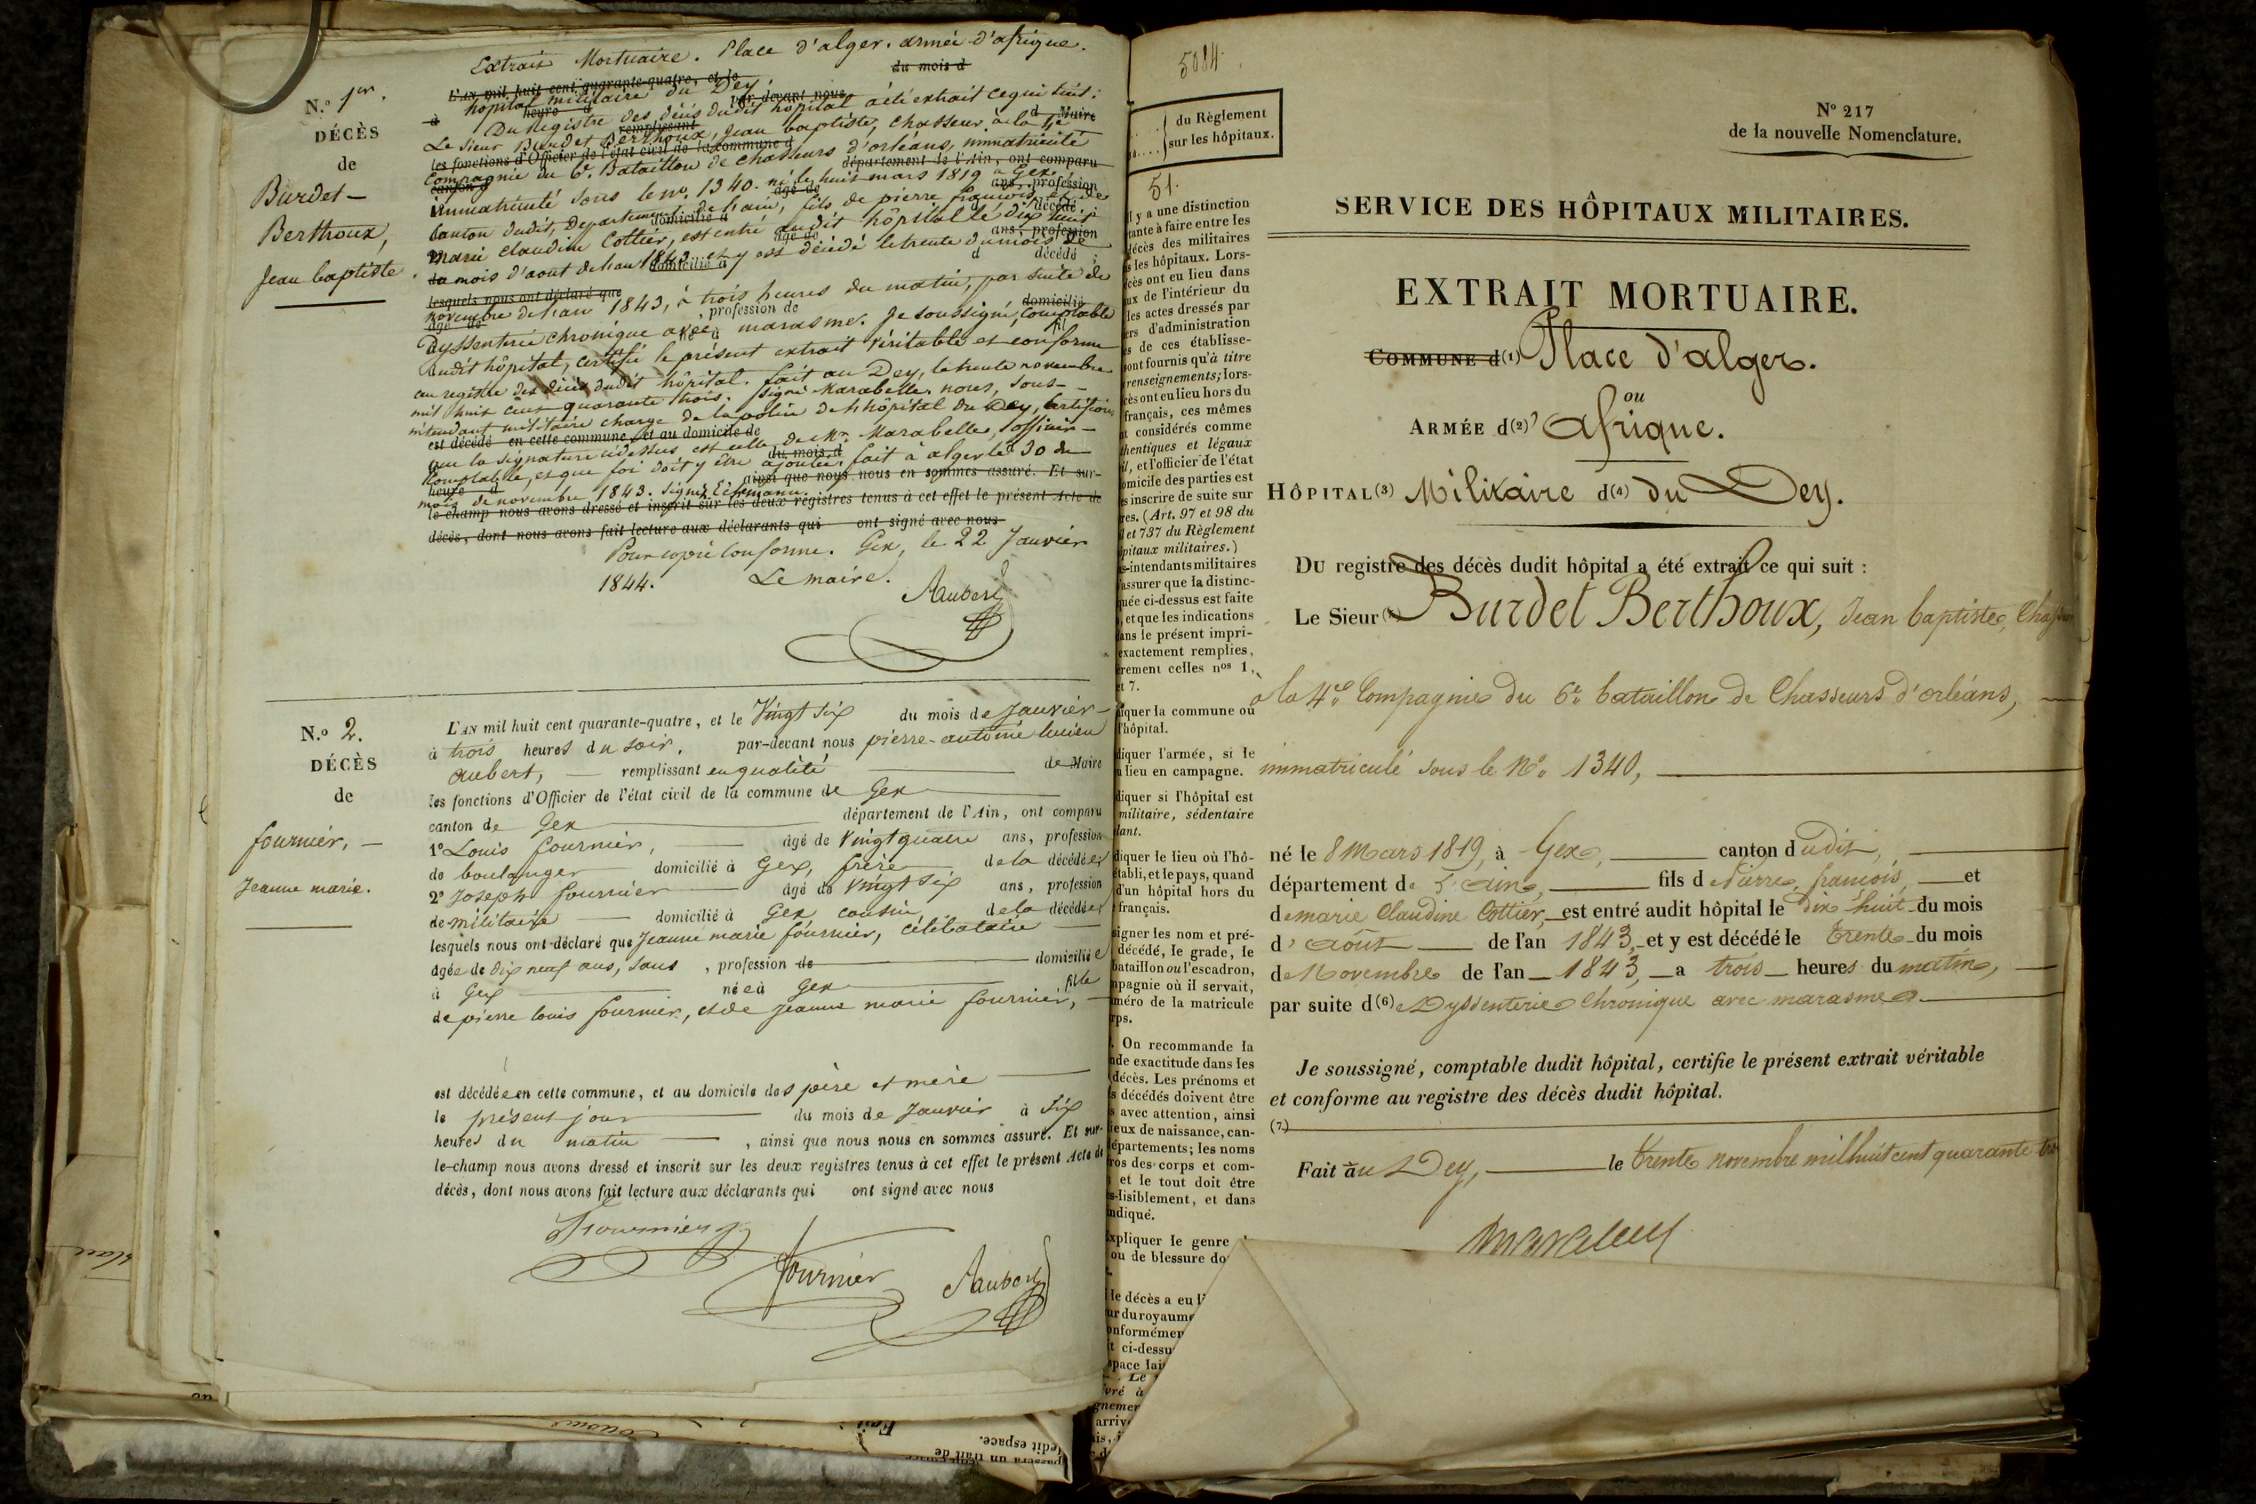 Extrait Mortuaire. Place d'alger. armée d'afrique.
L'an mil huit cent quarante-quatre, et le du mois d
hôpital militaire du Dey
à heure d par devant nous
Du Registre des décès dudit hôpital a été extrait ce qui suit :
remplissant d Maire
Le sieur Burdet Berthoux, Jean baptiste, chasseur à la 4e
les fonctions d'Officier de l'état civil de la commune d
Compagnie du 6e. Bataillon de chasseurs d'orléans, immatriculé
canton d département de l'Ain, ont comparu
immatriculé sous le no. 1340. né le huit mars 1819 à Gex,
âgé de ans, profession
canton dudit, département de l'ain, fils de pierre françois, et de
domicilié à décédé ;
marie claudine Cottier, est entré audit hôpital le dix huit
âgé de ans, profession
du mois d'aout de l'an 1843. et y est décédé le trente du mois de
domicilié à d décédé ;
lesquels nous ont déclaré que
novembre de l'an 1843, à trois heures du matin, par suite de
âgé de , profession de domicilié
Dyssenterie chronique avec marasme. Je soussigné, comptable
né à fil
dudit hôpital, certifie le présent extrait véritable et conforme
au registre des décès dudit hôpital. fait au Dey, le trente novembre
mil huit cent quarante trois. signé Marabelle. nous, sous-
intendant militaire chargé de la police de l'hôpital du Dey, Certifions
est décédé en cette commune, et au domicile de
que la signature cidessus est celle de Mr. Marabelle, officier
le du mois d à
Comptable, et que foi doit y être ajoutée. fait à alger le 30 du
heure d ainsi que nous nous en sommes assuré. Et sur-
mois de novembre 1843. signé
le-champ nous avons dressé et inscrit sur les deux registres tenus à cet effet le présent Acte de
décès, dont nous avons fait lecture aux déclarants qui ont signé avec nous
Pour copie conforme. Gex, le 22 Janvier
1844. Le maire.
Aubert
N.o 1er.
DÉCÈS
de
Burdet-
Berthoux,
Jean baptiste.
N.o 2.
DÉCÈS
de
fournier,
Jeanne marie.
L'AN mil huit cent quarante-quatre, et le Vingt six du mois de Janvier
à trois heures du soir, par-devant nous pierre-antoine lucien
aubert, remplissant en qualité de Maire
les fonctions d'Officier de l'état civil de la commune de Gex
canton de Gex département de l'Ain, ont comparu
1o Louis fournier, âgé de Vingt quatre ans, profession
de boulanger domicilié à Gex, frère de la décédée,
2o Joseph fournier âgé de Vingt six ans, profession
de militaire domicilié à Gex cousin, de la décédée,
lesquels nous ont déclaré que Jeanne marie fournier, célibataire
âgée de dix neuf ans, sans , profession de domiciliée
à Gex née à Gex fille
de pierre louis fournier, et de jeanne marie fournier,
est décédée en cette commune, et au domicile des père et mère
le présent jour du mois de Janvier à six
heures du matin , ainsi que nous nous en sommes assuré. Et sur-
le-champ nous avons dressé et inscrit sur les deux registres tenus à cet effet le présent Acte de
décès, dont nous avons fait lecture aux déclarants qui ont signé avec nous
fournier
fournier
Aubert
5084.
du Règlement
sur les hôpitaux.
51.
Il y a une distinction
tante à faire entre les
décès des militaires
s les hôpitaux. Lors-
cès ont eu lieu dans
ux de l'intérieur du
les actes dressés par
ers d'administration
s de ces établisse-
ont fournis qu'à titre
renseignements; lors-
cès ont eu lieu hors du
français, ces mêmes
nt considérés comme
thentiques et légaux
il, et l'officier de l'état
omicile des parties est
es inscrire de suite sur
res. (Art. 97 et 98 du
l et 737 du Règlement
pitaux militaires.)
s-intendants militaires
assurer que la distinc-
quée ci-dessus est faite
, et que les indications
ans le présent impri-
exactement remplies,
rement celles nos 1,
et 7.
iquer la commune où
l'hôpital.
diquer l'armée, si le
u lieu en campagne.
diquer si l'hôpital est
militaire, sédentaire
lant.
diquer le lieu où l'hô-
établi, et le pays, quand
d'un hôpital hors du
français.
signer les nom et pré-
décédé, le grade, le
bataillon ou l'escadron,
mpagnie où il servait,
méro de la matricule
rps.
. On recommande la
nde exactitude dans les
décès. Les prénoms et
s décédés doivent être
s avec attention, ainsi
lieux de naissance, can-
épartements; les noms
ros des corps et com-
et le tout doit être
s-lisiblement, et dans
ndiqué.
xpliquer le genre
ou de blessure do
le décès a eu li
ur du royaume
onformémen
t ci-dessu
space lai
Le
N° 217
de la nouvelle Nomenclature.
SERVICE DES HÔPITAUX MILITAIRES.
EXTRAIT MORTUAIRE.
COMMUNE d(1) Place d'alger.
ou
ARMÉE d(2)' Afrique.
HÔPITAL(3) Militaire d(4) du Dey.
DU registre des décès dudit hôpital a été extrait ce qui suit :
Le Sieur Burdet Berthoux, Jean baptiste, Chasseur
à la 4e Compagnie du 6e bataillon de Chasseurs d'orléans,
immatriculé sous le No 1340,
né le 8 Mars 1819, à Gex, canton dudit,
département de l'Ain, fils de Pierre, françois, et
de marie Claudine Cottier, est entré audit hôpital le dix huit du mois
d'août de l'an 1843, et y est décédé le trente du mois
de Novembre de l'an 1843, a trois heures du matin,
par suite d(6)e Dyssenterie Chronique avec marasme
Je soussigné, comptable dudit hôpital, certifie le présent extrait véritable
et conforme au registre des décès dudit hôpital.
(7)
Fait au Dey, le trente novembre mil huit cent quarante tro
Marabelle